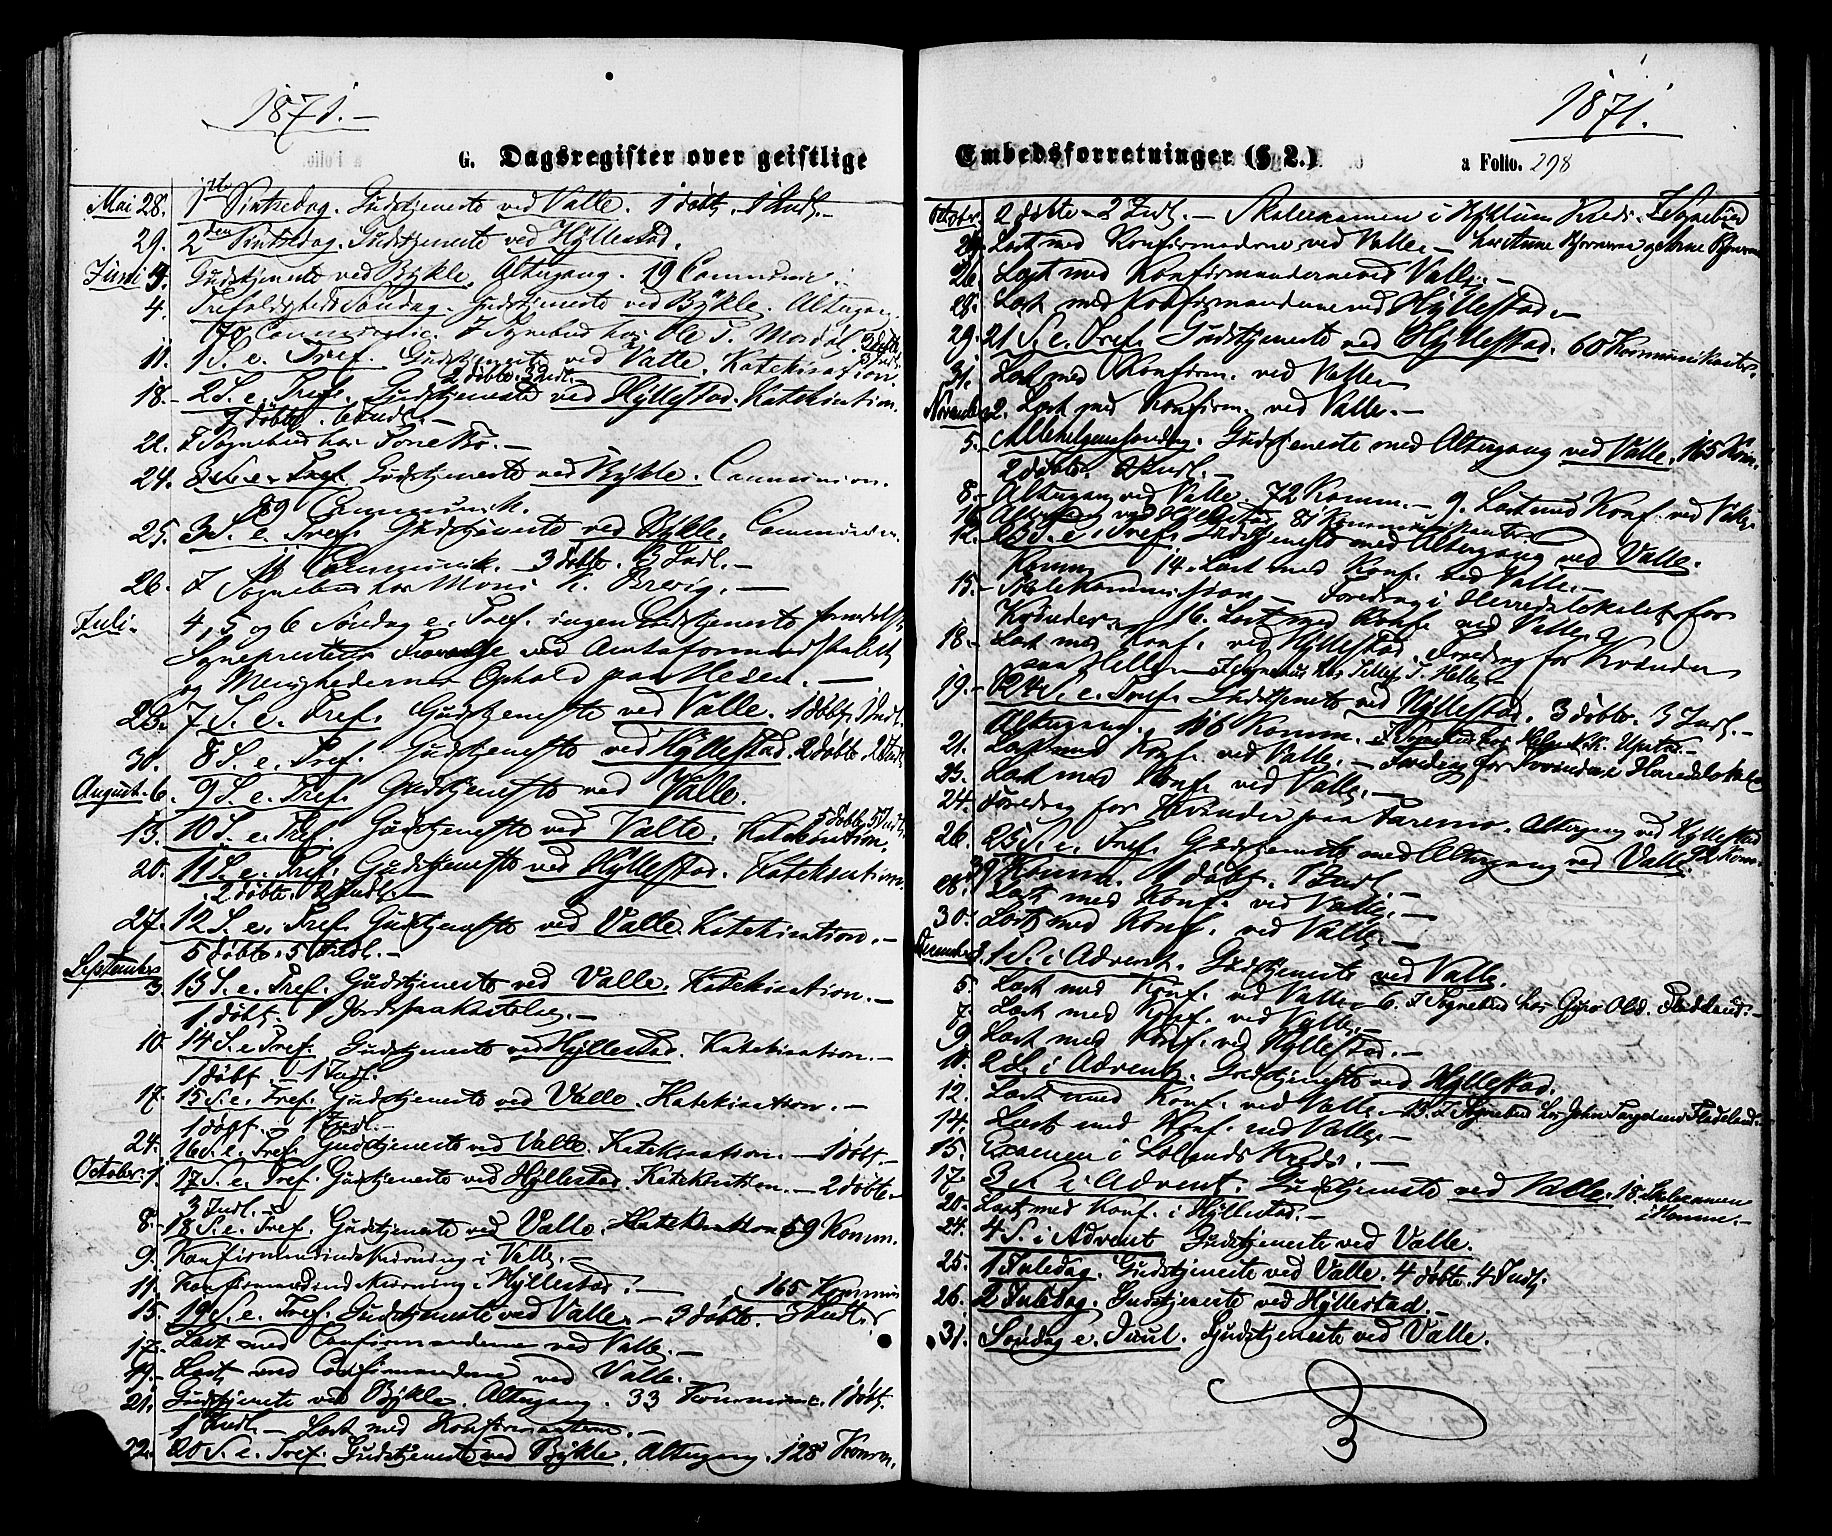 1871.
G. Dagsregister over geistlige
Mai 28. 1ste Pintsedag. Gudstjeneste ved Valle. 1 døbt, 1 Indl.
29. 2den Pintsedag. Gudstjeneste ved Hyllestad.
Juni 3. Gudstjeneste ved Bykle. Altergang. 19 Commun.
4. Trefoldigheds Søndag. Gudstjeneste ved Bykle. Altergang
70 I Sognebud hos Ole T. Mosdøl. 2 døbte
11. 1 S. e. Tref. Gudstjeneste ved Valle. Katekisation.
2 døbte. 3 Indl.
18. 2 S. e. Tref. Gudstjeneste ved Hyllestad. Katekisation.
7 døbte. 6 Indl.
22. I Sognebud hos Tone Bø.
24. 3 S. e. Tref. Gudstjeneste ved Bykle. Communion.
89 Communik.
25. 3 S. e. Tref. Gudstjeneste ved Bykle. Communion.
11 Communik. 3 døbte. 3 Indl.
26. I Sognebud hos K. Breivig.
Juli. 4, 5 og 6 Søndag e. Tref. ingen Gudstjeneste formedelst
Sognepræstens Fravær ved Amtsformandskabet
og Menighedernes Ophold paa Heien.
23. 7 S. e. Tref. Gudstjeneste ved Valle. 1 døbt, 1 Indl.
30. 8 S. e. Tref. Gudstjeneste ved Hyllestad. 2 døbte 2 Indl.
August 6. 9 S. e. Tref. Gudstjeneste ved Valle.
5 døbte 5 Indl.
13. 10 S. e. Tref. Gudstjeneste ved Valle. Katekisation.
20. 11 S. e. Tref. Gudstjeneste ved Hyllestad. Katekisation
2 døbte. 2 Indl.
27. 12 S. e. Tref. Gudstjeneste ved Valle. Katekisation.
5 døbte. 5 Indl.
September
3. 13 S. e. Tref. Gudstjeneste ved Valle. Katekisation.
1 døbt. 1 Jordspaakastelse.
10. 14 S. e. Tref. Gudstjeneste ved Hyllestad. Katekisation.
1 døbt. 1 Indl.
17. 15 S. e. Tref. Gudstjeneste ved Valle. Katekisation.
1 døbt. 1 Indl.
24. 16 S. e. Tref. Gudstjeneste ved Valle. Katekisation. 1 døbt.
October 1. 17 S. e. Tref. Gudstjeneste ved Hyllestad. Katekisation. 2 døbte.
3 Indl.
8. 18 S. e. Tref. Gudstjeneste ved Valle. Katekisation 59 Komm.
9. Konfirmandindskrivning i Valle.
11. Konfirmandindskrivning i Hyllestad. 165 Kommun
15. 19 S. e. Tref. Gudstjeneste ved Valle. 3 døbte. Indl.
17. Læst med Confirmanderne ved Valle.
19. Læst med Confirmanderne ved Valle.
21. Gudstjeneste ved Bykle. Altergang. 33 Kommun. 1 døbt.
1 Indl. Læst med Konfirmanterne.
22. 20 S. e. Tref. Gudstjeneste ved Bykle. Altergang. 128 Komm.
1871.
Embedsforretninger (§ 2.)
a Folio. 298
October. 2 døbte. 2 Indl. Skolexamen i Kreds. I Sognebud
24. Læst med Konfirmanderne ved Valle. hos Anne
26. Læst med Konfirmanderne ved Valle.
28. Læst med Konfirmanderne ved Hyllestad.
29. 21 S. e. Tref. Gudstjeneste ved Hyllestad. 60 Kommunikanter.
31. Læst med Konfirm. ved Valle.
November 2. Læst med Konfirm. ved Valle.
5. Allehelgensøndag. Gudstjeneste med Altergang ved Valle. 165 Kom.
2 døbte. 2 Indl.
8. Altergang ved Valle. 72 Komm. 9. Læst med Konf. ved Valle.
10. Altergang ved Hyllestad. 81 Kommunikanter.
12. 23 S. e. Tref. Gudstjeneste med Altergang ved Valle.
Komm. 14. Læst med Konf. ved Valle.
15. Skolekommission. Foredrag i Herredslokalet for
Kvinder. 16. Læst med Konf. ved Valle.
18. Læst med Konf. ved Hyllestad. Foredrag for Kvinder
paa Helle. I Sognebud hos T. Helle.
19. 24 S. e. Tref. Gudstjeneste ved Hyllestad. 3 døbte. 3 Indl.
Altergang. 116 Komm. I Sognebud hos K.
21. Læst med Konf. ved Valle. Foredrag for Kvinder i Herredslokalet
23. Læst med Konf. ved Valle.
24. Foredrag for Kvinder paa Faremo. Altergang ved Hyllestad
26. 25 S. e. Tref. Gudstjeneste med Altergang ved Valle. 92 Komm.
39 Komm. 1 døbt. 1 Indl.
28. Læst med Konf. ved Valle.
30. Læst med Konf. ved Valle.
December 3. 1 S. i Advent. Gudstjeneste ved Valle.
5. Læst med Konf. ved Valle. 6. I Sognebud hos Gyro Flateland.
7. Læst med Konf. ved Valle.
9. Læst med Konf. ved Hyllestad.
10. 2 S. i Advent. Gudstjeneste ved Hyllestad.
12. Læst med Konf. ved Valle. 13. I Sognebud hos John Torgeirsen Flateland.
14. Læst med Konf. ved Valle.
15. Examen i Løland Kreds.
17. 3 S. i Advent. Gudstjeneste ved Valle. 18. Skolexamen
20. Læst med Konf. i Hyllestad. i Homme.
24. 4 S. i Advent Gudstjeneste ved Valle.
25. 1 Juledag. Gudstjeneste ved Valle. 4 døbte. 4 Indl.
26. 2 Juledag. Gudstjeneste ved Hyllestad.
31. Søndag e. Juul. Gudstjeneste ved Valle.